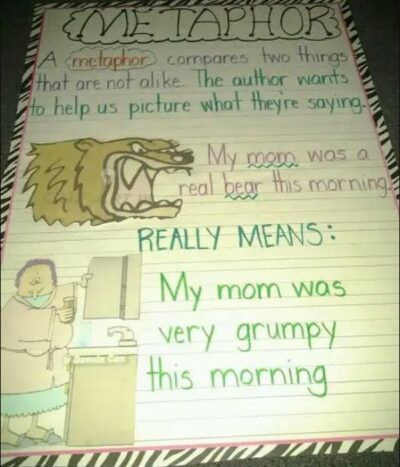 METAPHOR
A metaphor compares two things
that are not alike. The author wants
to help us picture what they're saying.
My mom was a
real bear this morning.
REALLY MEANS:
My mom was
very grumpy
this morning